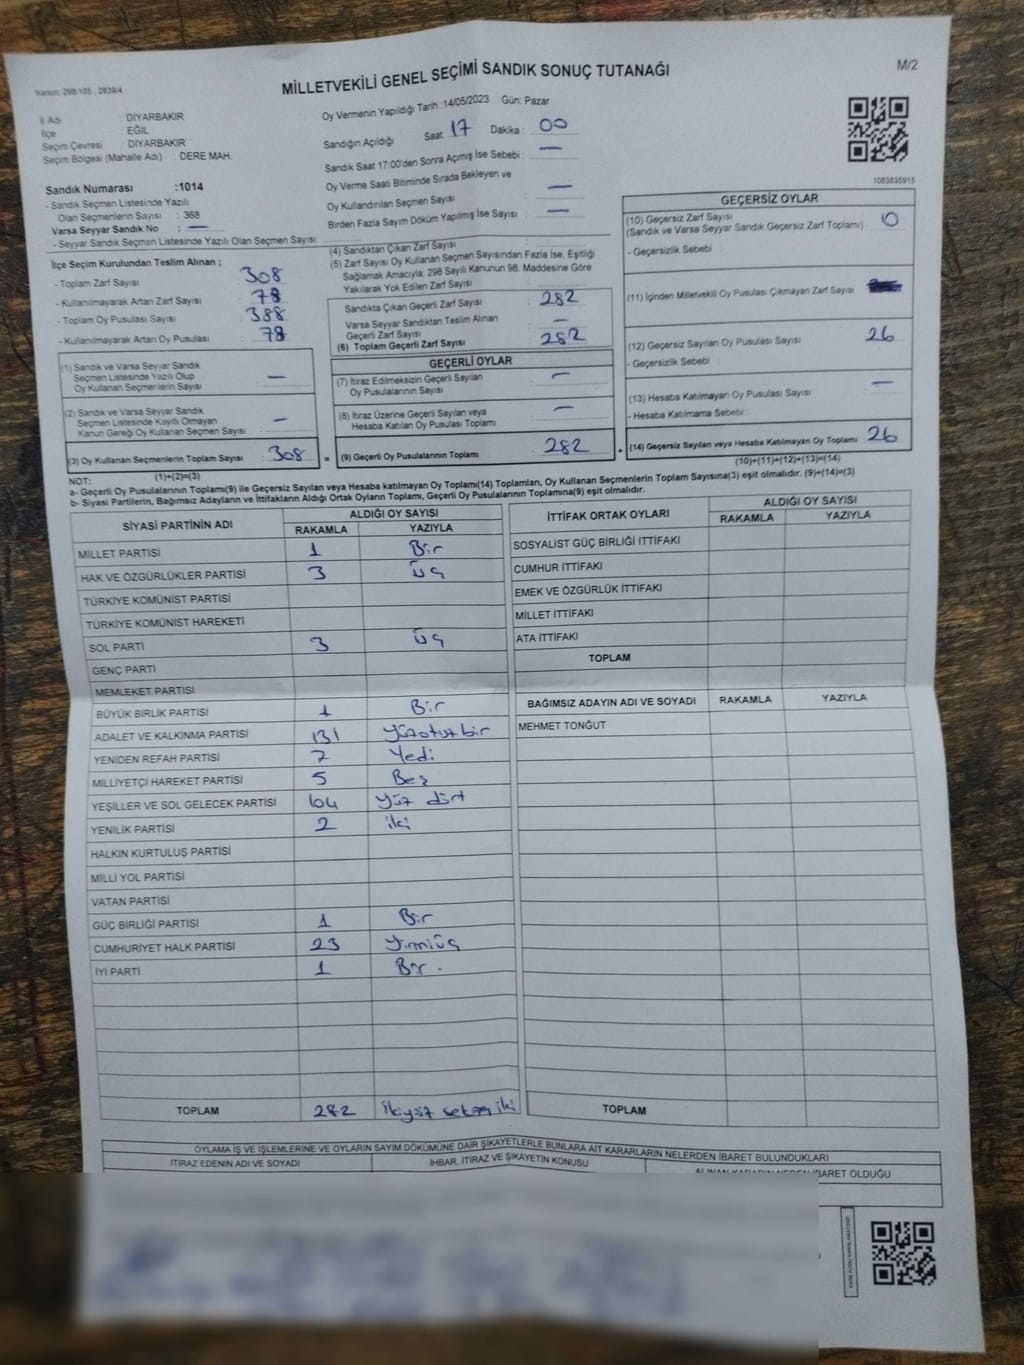 Kanun: 298/105 , 2839/4
MİLLETVEKİLİ GENEL SEÇİMİ SANDIK SONUÇ TUTANAĞI
M/2
İl Adı : DİYARBAKIR
İlçe : EĞİL
Seçim Çevresi : DİYARBAKIR
Seçim Bölgesi (Mahalle Adı) : DERE MAH.
Sandık Numarası :1014
- Sandık Seçmen Listesinde Yazılı
Olan Seçmenlerin Sayısı : 368
Varsa Seyyar Sandık No : —
- Seyyar Sandık Seçmen Listesinde Yazılı Olan Seçmen Sayısı:
Oy Vermenin Yapıldığı Tarih :14/05/2023 Gün: Pazar
Sandığın Açıldığı Saat: 17 Dakika : 00
Sandık Saat 17:00'den Sonra Açımış İse Sebebi : —
Oy Verme Saati Bitiminde Sırada Bekleyen ve
Oy Kullandırılan Seçmen Sayısı : —
Birden Fazla Sayım Döküm Yapılmış İse Sayısı : —
1083835915
İlçe Seçim Kurulundan Teslim Alınan ;
- Toplam Zarf Sayısı : 308
- Kullanılmayarak Artan Zarf Sayısı : 78
- Toplam Oy Pusulası Sayısı : 388
- Kullanılmayarak Artan Oy Pusulası : 78
(1) Sandık ve Varsa Seyyar Sandık
Seçmen Listesinde Yazılı Olup
Oy Kullanan Seçmenlerin Sayısı : —
(2) Sandık ve Varsa Seyyar Sandık
Seçmen Listesinde Kayıtlı Olmayan
Kanun Gereği Oy Kullanan Seçmen Sayısı : —
(3) Oy Kullanan Seçmenlerin Toplam Sayısı : 308
(1)+(2)=(3)
(4) Sandıktan Çıkan Zarf Sayısı :
(5) Zarf Sayısı Oy Kullanan Seçmen Sayısından Fazla İse, Eşitliği
Sağlamak Amacıyla; 298 Sayılı Kanunun 98. Maddesine Göre
Yakılarak Yok Edilen Zarf Sayısı :
Sandıkta Çıkan Geçerli Zarf Sayısı : 282
Varsa Seyyar Sandıktan Teslim Alınan
Geçerli Zarf Sayısı : —
(6) Toplam Geçerli Zarf Sayısı : 282
GEÇERLİ OYLAR
(7) İtiraz Edilmeksizin Geçerli Sayılan
Oy Pusulalarının Sayısı : —
(8) İtiraz Üzerine Geçerli Sayılan veya
Hesaba Katılan Oy Pusulası Toplamı : —
= (9) Geçerli Oy Pusulalarının Toplamı : 282
GEÇERSİZ OYLAR
(10) Geçersiz Zarf Sayısı
(Sandık ve Varsa Seyyar Sandık Geçersiz Zarf Toplamı) : 0
- Geçersizlik Sebebi :
(11) İçinden Milletvekili Oy Pusulası Çıkmayan Zarf Sayısı :
(12) Geçersiz Sayılan Oy Pusulası Sayısı : 26
- Geçersizlik Sebebi :
(13) Hesaba Katılmayan Oy Pusulası Sayısı : —
- Hesaba Katılmama Sebebi :
+ (14) Geçersiz Sayılan veya Hesaba Katılmayan Oy Toplamı : 26
(10)+(11)+(12)+(13)=(14)
NOT:
a- Geçerli Oy Pusulalarının Toplamı(9) ile Geçersiz Sayılan veya Hesaba katılmayan Oy Toplamı(14) Toplamları, Oy Kullanan Seçmenlerin Toplam Sayısına(3) eşit olmalıdır. (9)+(14)=(3)
b- Siyasi Partilerin, Bağımsız Adayların ve İttifakların Aldığı Ortak Oyların Toplamı, Geçerli Oy Pusulalarının Toplamına(9) eşit olmalıdır.
SİYASİ PARTİNİN ADI ALDIĞI OY SAYISI
RAKAMLA YAZIYLA
MİLLET PARTİSİ 1 Bir
HAK VE ÖZGÜRLÜKLER PARTİSİ 3 Üç
TÜRKİYE KOMÜNİST PARTİSİ
TÜRKİYE KOMÜNİST HAREKETİ
SOL PARTİ 3 Üç
GENÇ PARTİ
MEMLEKET PARTİSİ
BÜYÜK BİRLİK PARTİSİ 1 Bir
ADALET VE KALKINMA PARTİSİ 131 Yüzotuzbir
YENİDEN REFAH PARTİSİ 7 Yedi
MİLLİYETÇİ HAREKET PARTİSİ 5 Beş
YEŞİLLER VE SOL GELECEK PARTİSİ 104 Yüz dört
YENİLİK PARTİSİ 2 iki
HALKIN KURTULUŞ PARTİSİ
MİLLİ YOL PARTİSİ
VATAN PARTİSİ
GÜÇ BİRLİĞİ PARTİSİ 1 Bir
CUMHURİYET HALK PARTİSİ 23 Yirmiüç
İYİ PARTİ 1 Bir.
TOPLAM 282 İkiyüz seksen iki
İTTİFAK ORTAK OYLARI ALDIĞI OY SAYISI
RAKAMLA YAZIYLA
SOSYALİST GÜÇ BİRLİĞİ İTTİFAKI
CUMHUR İTTİFAKI
EMEK VE ÖZGÜRLÜK İTTİFAKI
MİLLET İTTİFAKI
ATA İTTİFAKI
TOPLAM
BAĞIMSIZ ADAYIN ADI VE SOYADI RAKAMLA YAZIYLA
MEHMET TONĞUT
TOPLAM
OYLAMA İŞ VE İŞLEMLERİNE VE OYLARIN SAYIM DÖKÜMÜNE DAİR ŞİKAYETLERLE BUNLARA AİT KARARLARIN NELERDEN İBARET BULUNDUKLARI
İTİRAZ EDENİN ADI VE SOYADI İHBAR, İTİRAZ VE ŞİKAYETİN KONUSU ALINAN KARARIN NEDEN İBARET OLDUĞU